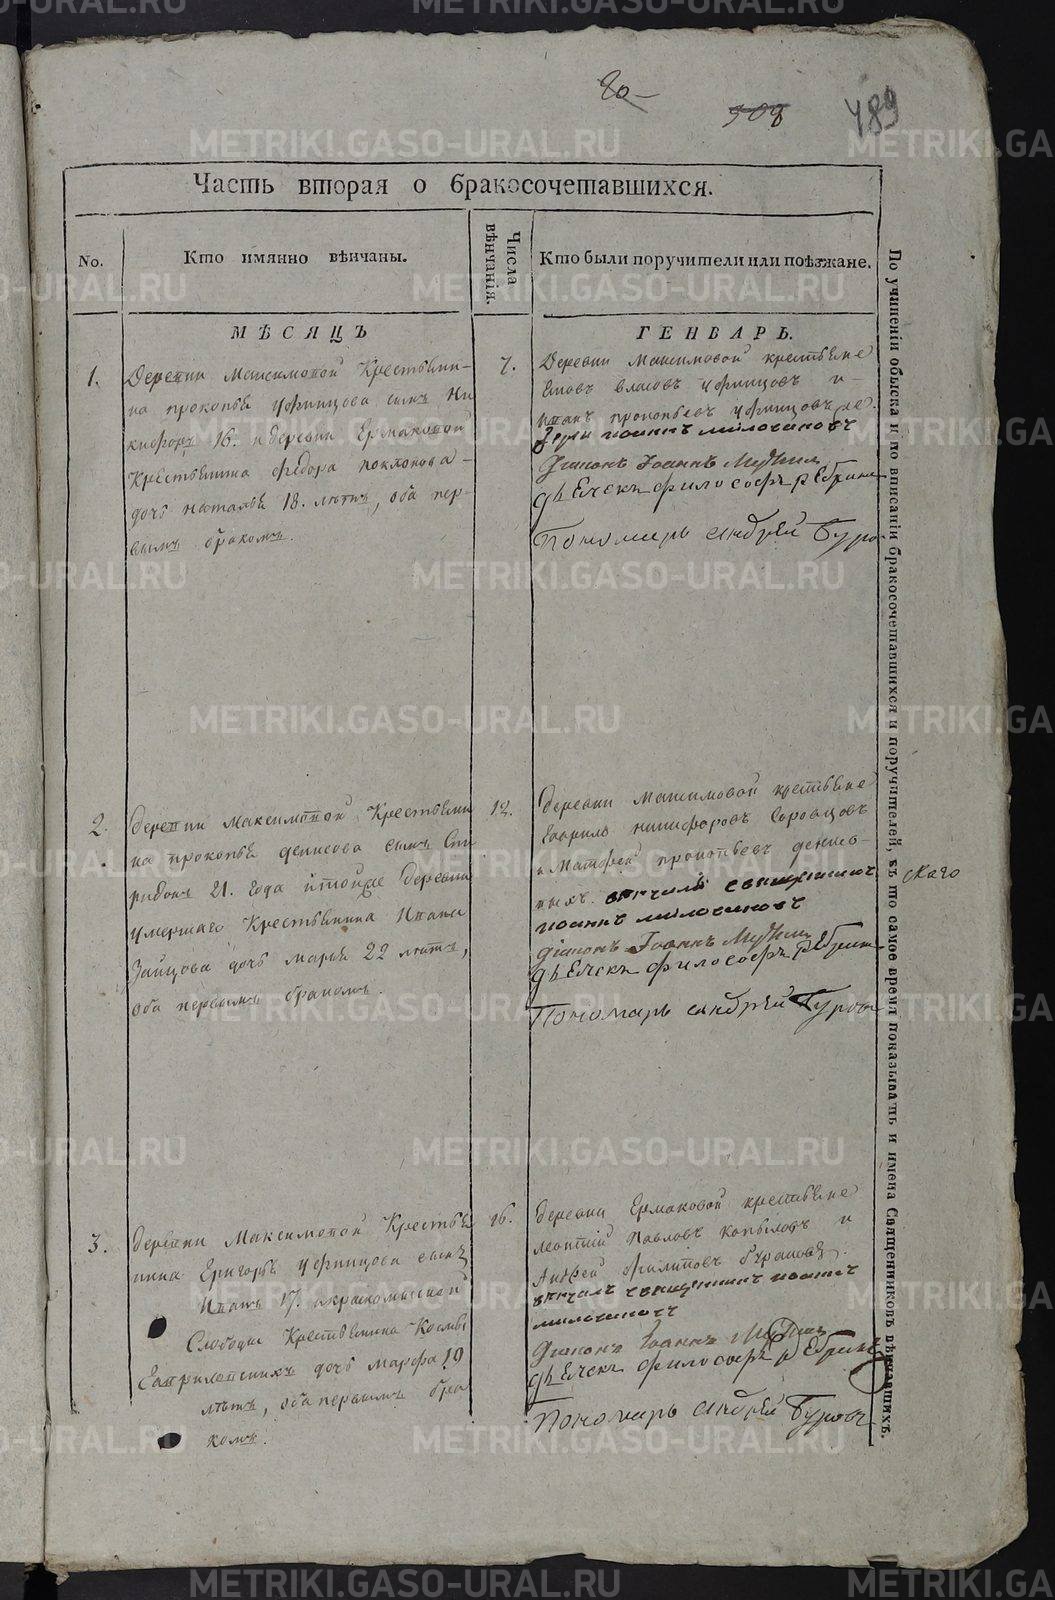 80
508
489
Часть вторая о бракосочетавшихся.
No.
Кто имянно вѣнчаны.
Числа вѣнчанія.
Кто были поручители или поѣзжане.
МѢСЯЦЪ
ГЕНВАРЬ.
1.
Деревни Максимовой Крестьяни-
на прокопья Уфинцова сынъ Ни
кифоръ 16. и деревни Ермаковой
Крестьянина федора поклонова
дочь наталья 18. лѣтъ, оба пер-
вымъ бракомъ.
7.
Деревни Максимовой крестьяне
власовъ Уфинцовъ и
иванъ прокопьевъ Уфинцовъ
иоаннъ
Діаконъ Іоаннъ
дьячекъ философъ
Пономарь андрей Буровъ
2.
Деревни Максимовой Крестьяни
на прокопья денисова сынъ Спи
ридонъ 21. года и тойже деревни
умершаго Крестьянина Ивана
Зайцова дочь марья 22 лѣтъ,
оба первымъ бракомъ.
12.
Деревни Максимовой крестьяне
Гаврило никифоровъ
и Матфей прокопьевъ денисо-
выхъ. вѣнчалъ священникъ
иоаннъ
діаконъ Іоаннъ
дьячекъ философъ
Пономарь андрей Буровъ
3.
деревни Максимовой Крестья
нина Григорья Уфинцова сынъ
Иванъ 17. и краскомыской
Слободы Крестьянина Космы
дочь марфа 19
лѣтъ, оба первымъ бра
комъ.
16.
деревни Ермаковой крестьяне
леонтий Павловъ Копыловъ и
Андрей филиповъ
вѣнчалъ священникъ иоаннъ
Діаконъ Іоаннъ
дьячекъ философъ
Пономарь андрей Буровъ
По учиненіи обыска и по вписаніи бракосочетавшихся и поручителей, въ то самое время показывать и имена Священниковъ вѣнчавшихъ.
скаго
METRIKI.GASO-URAL.RU